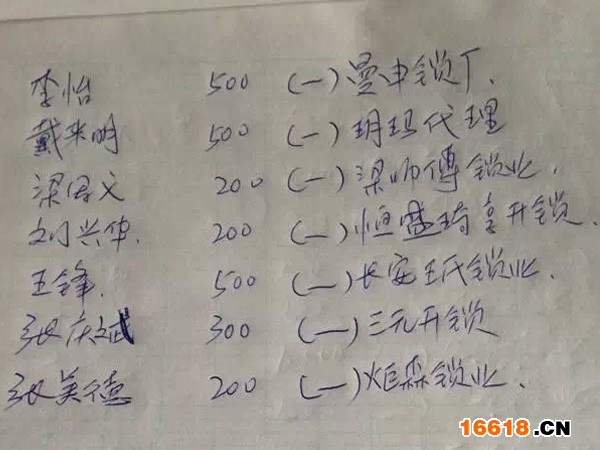 李怡 500 (一)曼申锁厂.
戴来明 500 (一)玥玛代理
梁国文 200 (一)梁师傅锁业.
刘兴华. 200 (一)恒盛琦喜开锁.
王锋. 500 (一)长安王氏锁业.
张庆斌 300 (一)三元开锁
张美德 200 (一)炬森锁业.
16618.CN